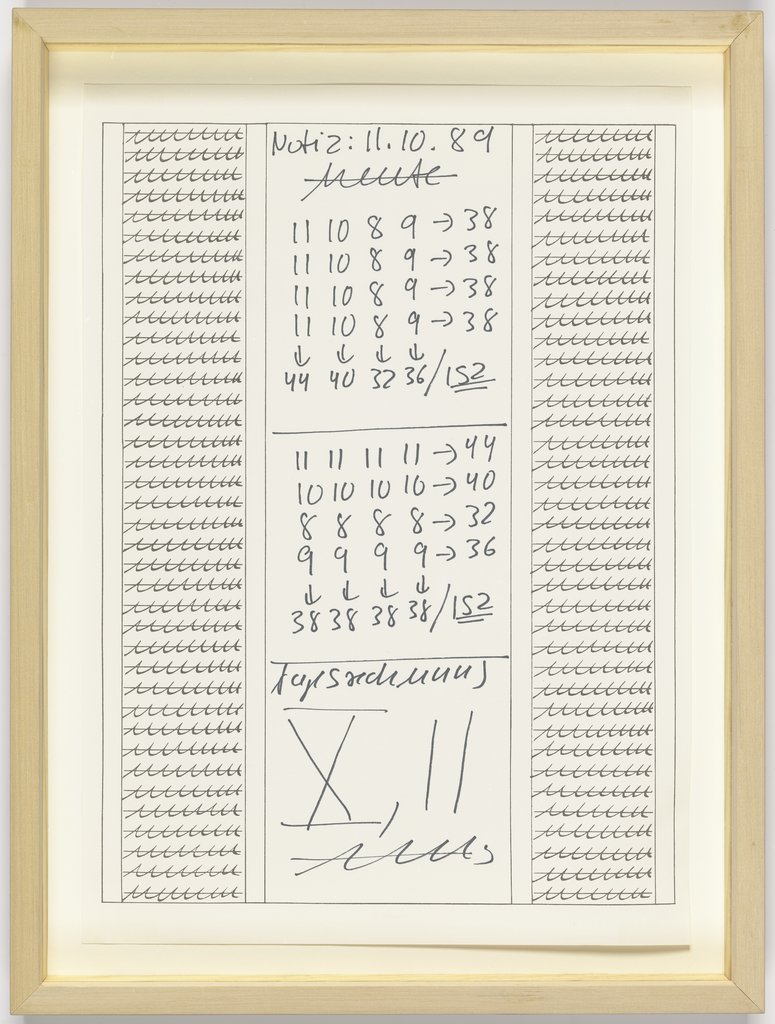 Notiz: 11.10.89
heute
11 10 8 9 → 38
11 10 8 9 → 38
11 10 8 9 → 38
11 10 8 9 → 38
↓ ↓ ↓ ↓
44 40 32 36 / 152
11 11 11 11 → 44
10 10 10 10 → 40
8 8 8 8 → 32
9 9 9 9 → 36
↓ ↓ ↓ ↓
38 38 38 38 / 152
Tagesrechnung
X, II